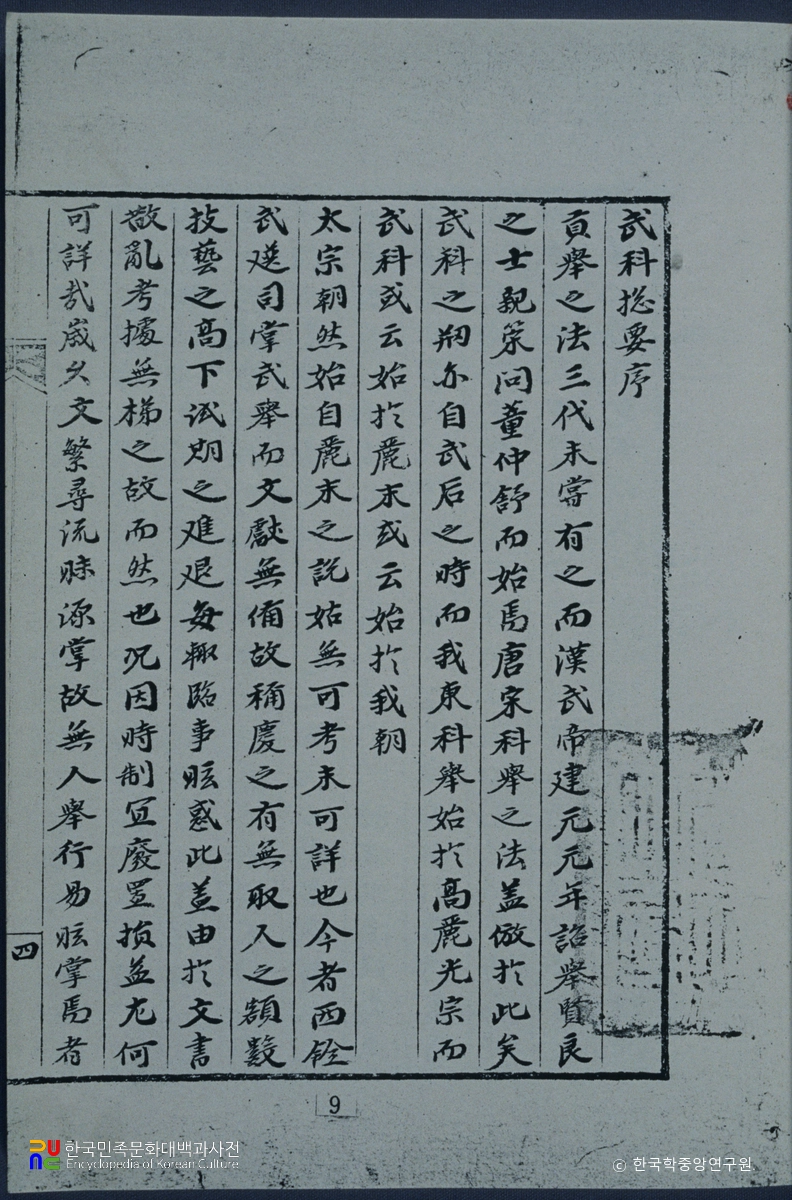 武科捴要序
貢擧之法三代未嘗有之而漢武帝建元元年詔擧賢良
之士親策問董仲舒而始焉唐宋科擧之法盖倣於此矣
武科之刱亦自武后之時而我東科擧始於高麗光宗而
武科或云始於麗末或云始於我朝
太宗朝然始自麗末之說姑無可考未可詳也今者西銓
武選司掌武擧而文獻無備故稱慶之有無取人之額數
技藝之高下試期之难艰每輙臨事眩惑此盖由於文書
散亂考據無梯之故而然也况因時制宜廢置損益尤何
可詳哉歲久文繁尋流昧源掌故無人擧行易眩掌焉者
四
9
한국민족문화대백과사전
Encyclopedia of Korean Culture
© 한국학중앙연구원